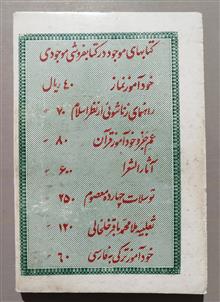 کتابهای موجود در کتابفروشی موجودی
خودآموز نماز ۴۰ ریال
راهنمای زناشوئی از نظر اسلام ۷۰ "
عم جزو خودآموز قرآن ۸۰ "
آثار الشعرا ۶۰۰ "
توسلات چهارده معصوم ۲۵۰ "
ثعلبیه ملا محمد باقر خلخالی ۱۲۰ "
خودآموز ترکی به فارسی ۶۰ "